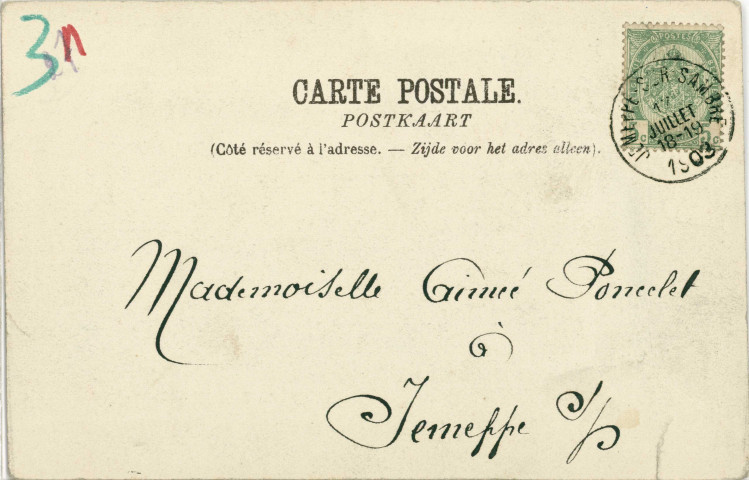 3n
POSTES
CARTE POSTALE.
POSTKAART
(Côté réservé à l'adresse. — Zijde voor het adres alleen).
JEMEPPE-SUR-SAMBRE
JUILLET
18-19
1903
Mademoiselle Aimée Poncelet
à
Jemeppe s/s